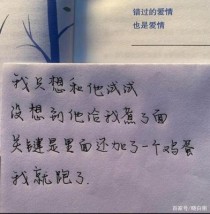 错过的爱情
也是爱情
我只想和他试试
没想到他给我煮了面
关键是里面还加了一个鸡蛋
我就跑了.